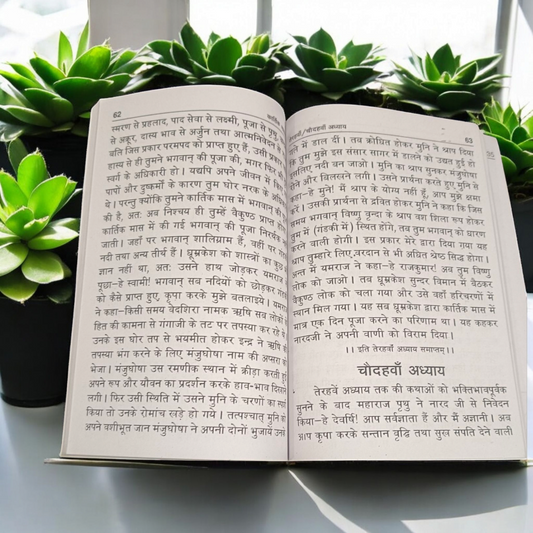 62
स्मरण से प्रहलाद, पाद सेवा से लक्ष्मी, पूजा से पृथु
से अक्रूर, दास्य भाव से अर्जुन तथा आत्मनिवेदन से
बलि जिस प्रकार परमपद को प्राप्त हुए हैं, उसी प्रकार
हास्य से ही तुमने भगवान् की पूजा की, मगर फिर
स्वर्ग के अधिकारी हो। यद्यपि अपने जीवन में किये
पापों और दुष्कर्मों के कारण तुम घोर नरक के अधिकारी
थे। परन्तु क्योंकि तुमने कार्तिक मास में भगवान् की
की है, अतः अब निश्चय ही तुम्हें वैकुण्ठ प्राप्त
कार्तिक मास में की गई भगवान् की पूजा निरर्थक
जाती। जहाँ पर भगवान् शालिग्राम हैं, वहीं पर
नदी तथा अन्य तीर्थ हैं। धूम्रकेश को शास्त्रों का कुछ
ज्ञान नहीं था, अतः उसने हाथ जोड़कर यमराज
पूछा–हे स्वामी! भगवान् सब नदियों को छोड़कर
को कैसे प्राप्त हुए, कृपा करके मुझे बतलाइये। यमराज
ने कहा–किसी समय वेदशिरा नामक ऋषि सब लोकों
हित की कामना से गंगाजी के तट पर तपस्या कर रहे
उनके इस घोर तप से भयमीत होकर इन्द्र ने ऋषि की
तपस्या भंग करने के लिए मंजुघोषा नाम की अप्सरा
भेजा। मंजुघोषा उस रमणीक स्थान में क्रीड़ा करती हुई
अपने रूप और यौवन का प्रदर्शन करके हाव-भाव दिखाने
लगी। फिर उसी स्थिति में उसने मुनि के चरणों का स्पर्श
किया तो उनके रोमांच खड़े हो गये। तत्पश्चात् मुनि को
अपने वशीभूत जान मंजुघोषा ने अपनी दोनों भुजायें उनके
चौदहवाँ अध्याय
63
में डाल दीं। तब क्रोधित होकर मुनि ने श्राप दिया
कि तुम मुझे इस संसार सागर में डालने को उद्यत हुई हो
इसलिए नदी बन जाओ। मुनि का श्राप सुनकर मंजुघोषा
रोने और विलखने लगी। उसने प्रार्थना करते हुए मुनि से
कहा–हे मुने! मैं श्राप के योग्य नहीं हूँ, आप मुझे क्षमा
करें। उसकी प्रार्थना से द्रवित होकर मुनि ने कहा कि जिस
समय भगवान् विष्णु वृन्दा के श्राप वश शिला रूप होकर
तुम में (गंडकी में) स्थित होंगे, तब तुम भगवान् को धारण
करने वाली होगी। इस प्रकार मेरे द्वारा दिया गया यह
श्राप तुम्हारे लिए,वरदान से भी अप्रित श्रेष्ठ सिद्ध होगा।
अन्त में यमराज ने कहा–हे राजकुमार! अब तुम विष्णु
लोक को जाओ। तब धूम्रकेश सुन्दर विमान में बैठकर
वैकुण्ठ लोक को चला गया और उसे वहाँ हरिचरणों में
स्थान मिल गया। यह सब धूम्रकेश द्वारा कार्तिक मास में
मात्र एक दिन पूजा करने का परिणाम था। यह कहकर
नारदजी ने अपनी वाणी को विराम दिया।
।। इति तेरहवाँ अध्याय समाप्तम्।।
चौदहवाँ अध्याय
तेरहवें अध्याय तक की कथाओं को भक्तिभावपूर्वक
सुनने के बाद महाराज पृथु ने नारद जी से निवेदन
किया–हे देवर्षि! आप सर्वज्ञाता हैं और मैं अज्ञानी। अब
आप कृपा करके सन्तान वृद्धि तथा सुख संपति देने वाली